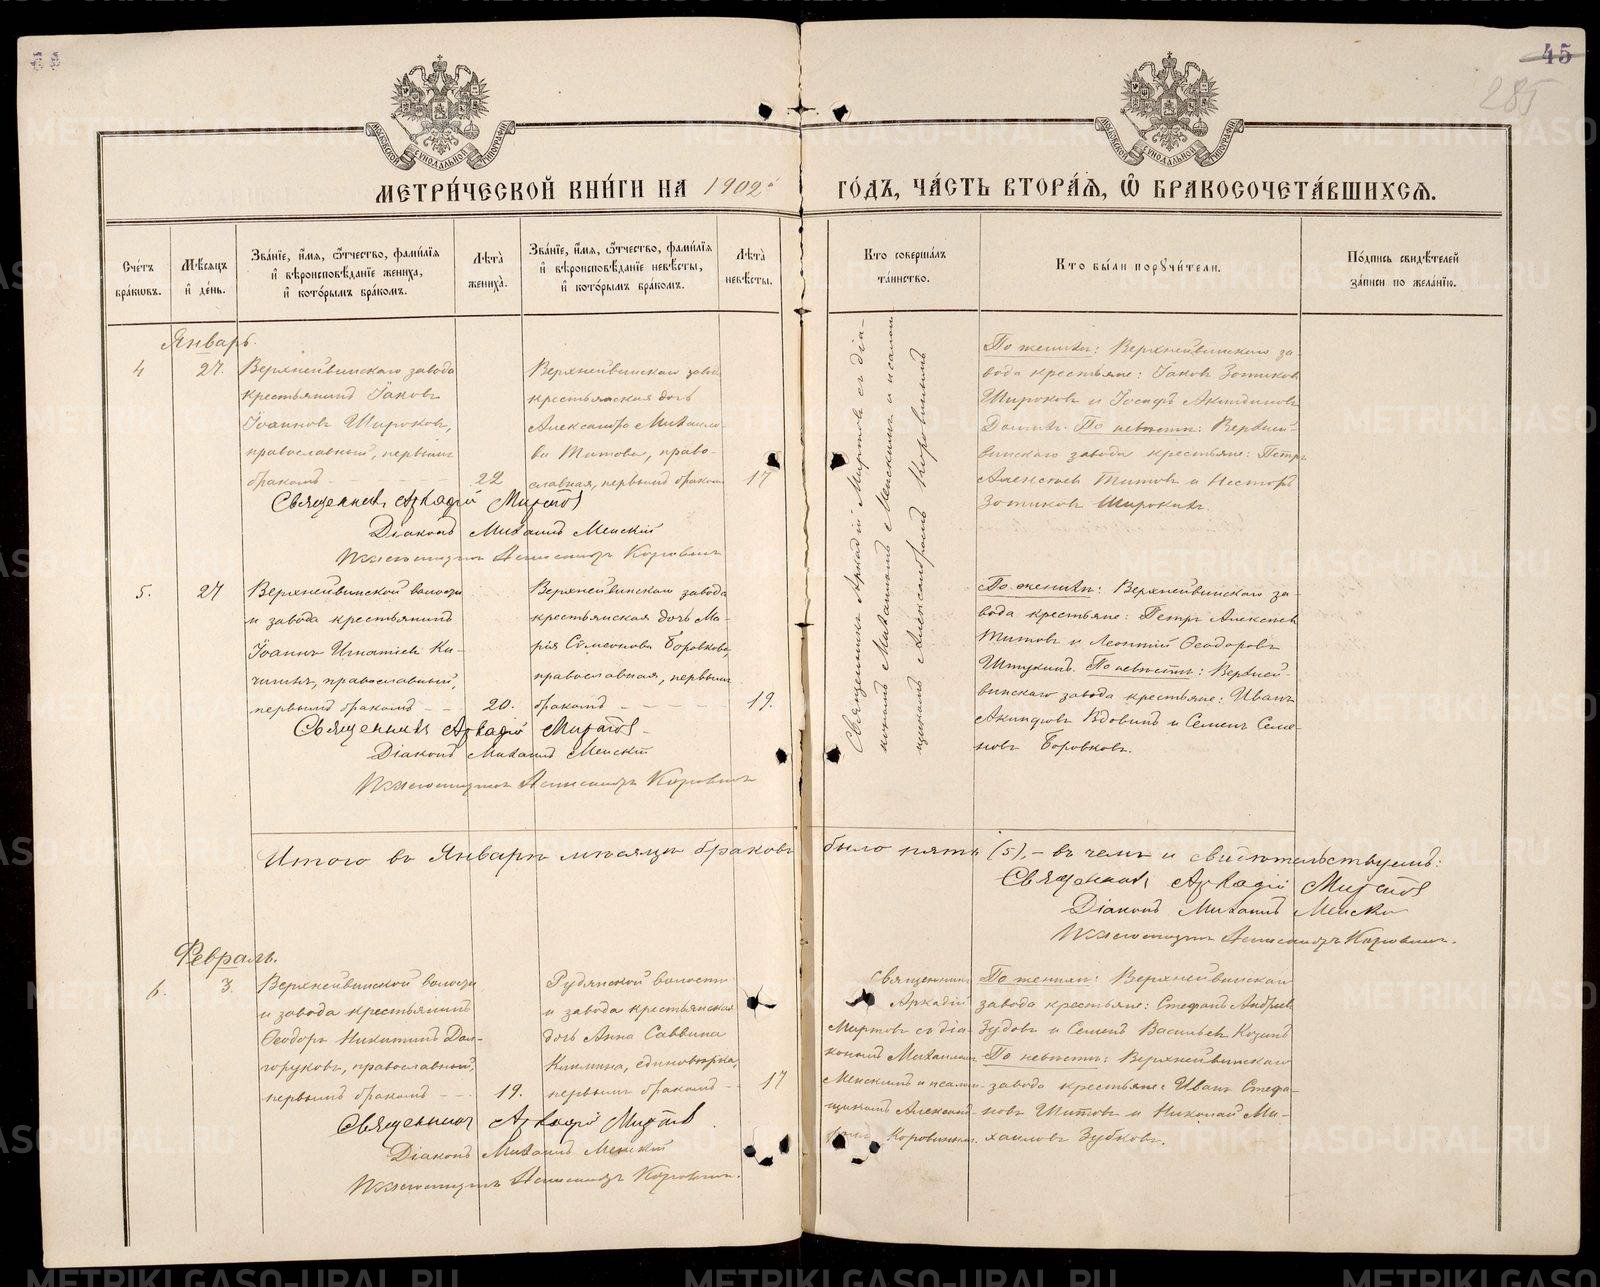 45
285
МЕТРИ́ЧЕСКОЙ КНИ́ГИ НА 1902й ГО́ДЪ, ЧА́СТЬ ВТОРА́Ѧ, Ѽ БРАКОСОЧЕТА́ВШИХСѦ.
Сче́тъ бра́ковъ.
Мѣ́сяцъ и҆ де́нь.
Зва́нїе, и҆́мѧ, ѻ҆́тчество, фами́лїѧ
и҆ вѣроисповѣ́данїе жениха̀,
и҆ кото́рымъ бра́комъ.
Лѣ́та
жениха̀.
Зва́нїе, и҆́мѧ, ѻ҆́тчество, фами́лїѧ
и҆ вѣроисповѣ́данїе невѣ́сты,
и҆ кото́рымъ бра́комъ.
Лѣ́та
невѣ́сты.
Кто соверша́лъ
та́инство.
Кто бы́ли порꙋчи́тели.
По́дпись свидѣ́телей
за́писи по жела́нїю.
Январь.
4
27.
Верхнейвинскаго завода
крестьянинъ Іаковъ
Іоанновъ Широковъ,
православный, первымъ
бракомъ
22
Верхнейвинскаго завода
крестьянская дочь
Александра Михаило-
ва Титова, право-
славная, первымъ бракомъ
17
Священникъ Аркадій Миртовъ съ діа-
кономъ Михаиломъ Менскимъ и псалом-
щикомъ Александромъ Коровинымъ
По женихѣ: Верхнейвинскаго за-
вода крестьяне: Іаковъ Зотиковъ
Широковъ и Іосифъ Акиндиновъ
По невѣстѣ: Верхней-
винскаго завода крестьяне: Петръ
Алексѣевъ Титовъ и Несторъ
Зотиковъ Широкихъ.
Священникъ Аркадій Миртовъ
Діаконъ Михаилъ Менскій
Псаломщикъ Александръ Коровинъ
5.
27
Верхнейвинской волости
и завода крестьянинъ
Іоаннъ Игнатіевъ Ки-
православный,
первымъ бракомъ
20.
Верхнейвинскаго завода
крестьянская дочь Ма-
рія Сѵмеонова Боровкова,
православная, первымъ
бракомъ
19.
По женихѣ: Верхнейвинскаго за-
вода крестьяне: Петръ Алексѣевъ
Титовъ и Леонтій Ѳеодоровъ
Штукинъ. По невѣстѣ: Верхней-
винскаго завода крестьяне: Иванъ
Вдовинъ и Семенъ Семе-
новъ Боровковъ.
Священникъ Аркадій Миртовъ
Діаконъ Михаилъ Менскій
Псаломщикъ Александръ Коровинъ
Итого въ Январѣ мѣсяцѣ браковъ было пять (5), – въ чемъ и свидѣтельствуемъ:
Священникъ Аркадій Миртовъ
Діаконъ Михаилъ Менскій
Псаломщикъ Александръ Коровинъ.
Февраль.
6.
3.
Верхнейвинской волости
и завода крестьянинъ
Ѳеодоръ Никитинъ Дол-
горуковъ, православный,
первымъ бракомъ
19.
Рудянской волости
и завода крестьянская
дочь Анна Саввина
Кикмина, единовѣрка,
первымъ бракомъ
17
Священникъ
Аркадій
Миртовъ съ діа-
кономъ Михаиломъ
Менскимъ и псалом-
щикомъ Алексан-
дромъ Коровинымъ.
По женихѣ: Верхнейвинскаго
завода крестьяне: Стефанъ Андреевъ
Зудовъ и Семенъ Васильевъ
По невѣстѣ: Верхнейвинскаго
завода крестьяне: Иванъ Стефа-
новъ Шитовъ и Николай Ми-
хаиловъ Зубковъ.
Священникъ Аркадій Миртовъ
Діаконъ Михаилъ Менскій
Псаломщикъ Александръ Коровинъ.
METRIKI.GASO-URAL.RU